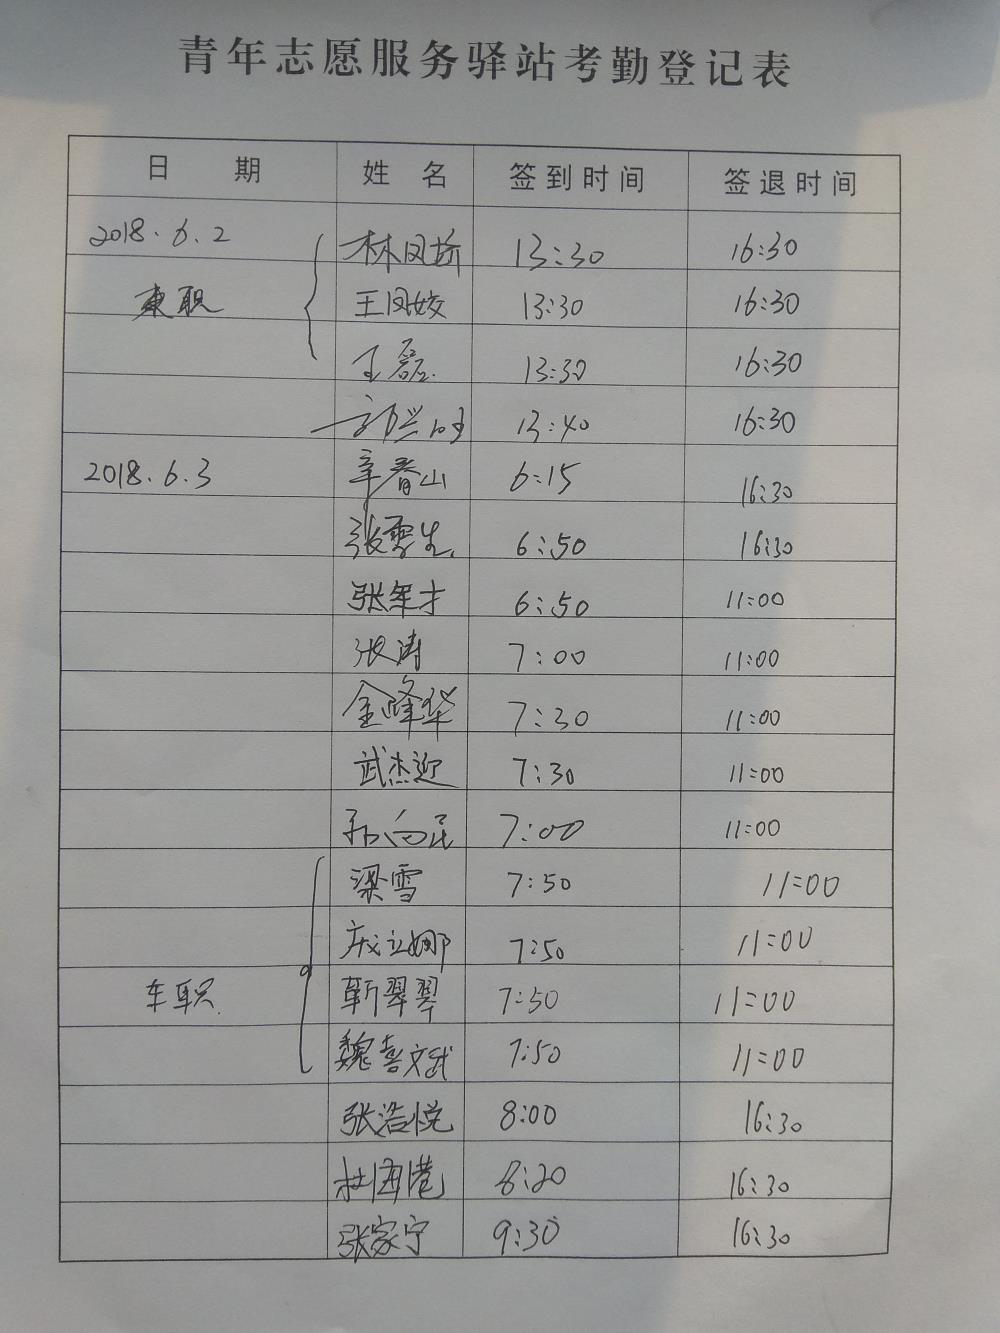 青年志愿服务驿站考勤登记表
日 期 姓 名 签到时间 签退时间
2018.6.2 林凤娇 13:30 16:30
兼职 王凤姣 13:30 16:30
王磊 13:30 16:30
13:40 16:30
2018.6.3 辛春山 6:15 16:30
张雪生 6:50 16:30
张军才 6:50 11:00
张涛 7:00 11:00
金峰华 7:30 11:00
武杰迎 7:30 11:00
孙向民 7:00 11:00
梁雪 7:50 11:00
成立娜 7:50 11:00
车职 靳翠翠 7:50 11:00
魏喜文武 7:50 11:00
张浩悦 8:00 16:30
杜海港 8:20 16:30
张家宁 9:30 16:30